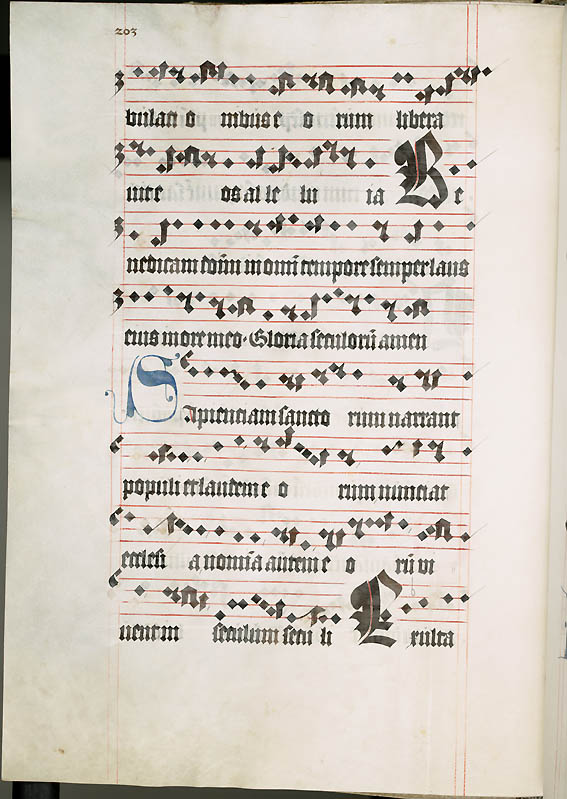 203
bulati o nibus e o rum libera
uit e os al le lu ia Be
nedicam dom̅ in omni tempore semper laus
eius in ore meo. Gloria seculoru̅ amen
Sapienciam sancto rum narrant
populi et laudem e o rum nunciat
ecclesi a nomi̅a autem e o ru̅ vi
uent in seculum secu li Exulta